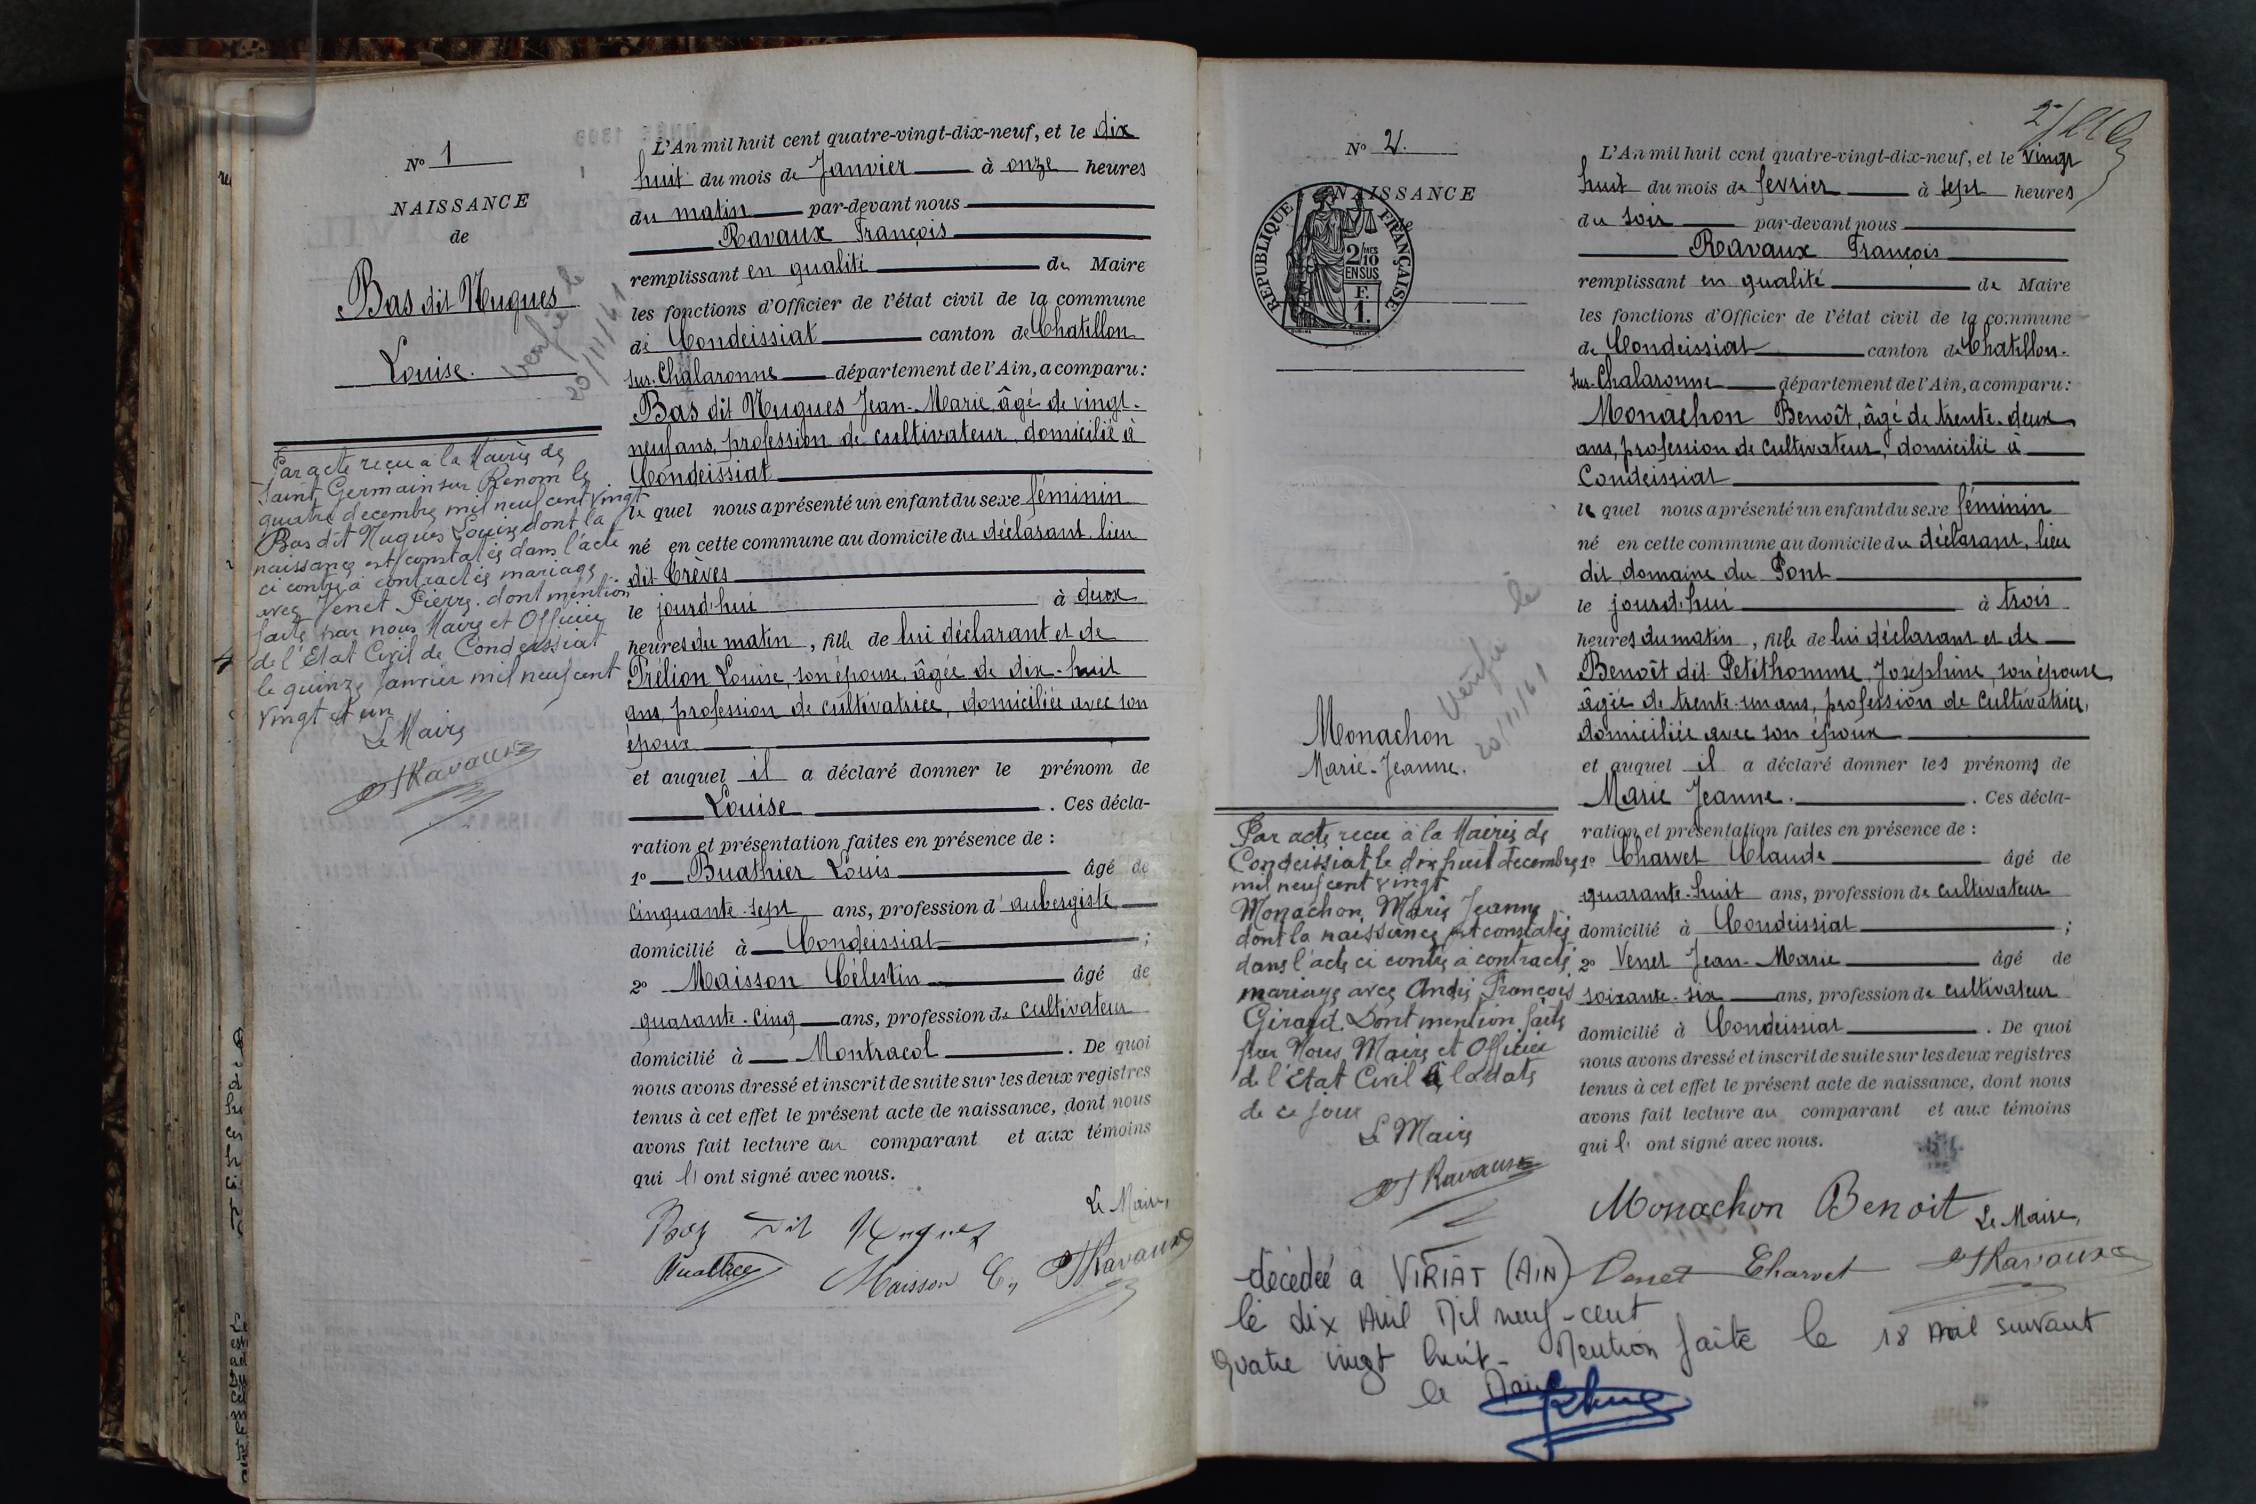 N° 1
NAISSANCE
de
Bas dit Nugues
Louise.
Vérifié le
20/11/61
Par acte reçu à la Mairie de
Saint Germain sur Renom le
quatre decembre mil neuf cent vingt
Bas dit Nugues Louise dont la
naissance est constatée dans l'acte
ci contre à contractée mariage
avec Venet Pierre. dont mention
faite par nous Maire et Officier
de l'Etat Civil de Condeissiat
le quinze Janvier mil neuf cent
vingt et un
Le Maire
Ravaux
L'An mil huit cent quatre-vingt-dix-neuf, et le dix
huit du mois de Janvier à onze heures
du matin par-devant nous
Ravaux François
remplissant en qualité de Maire
les fonctions d'Officier de l'état civil de la commune
de Condeissiat canton de Chatillon
sur-Chalaronne département de l'Ain, a comparu:
Bas dit Nugues Jean-Marie, âgé de vingt-
neuf ans, profession de cultivateur, domicilié à
Condeissiat
le quel nous a présenté un enfant du sexe féminin
né en cette commune au domicile du déclarant, lieu
dit Crèves
le jourd'hui à deux
heures du matin, fille de lui déclarant et de
Prélion Louise, son épouse, âgée de dix-huit
ans, profession de cultivatrice, domiciliée avec son
époux
et auquel il a déclaré donner le prénom de
Louise. Ces décla-
ration et présentation faites en présence de :
1° Buathier Louis âgé de
cinquante-sept ans, profession d'aubergiste
domicilié à Condeissiat ;
2° Maisson Célestin âgé de
quarante-cinq ans, profession de cultivateur
domicilié à Montracol. De quoi
nous avons dressé et inscrit de suite sur les deux registres
tenus à cet effet le présent acte de naissance, dont nous
avons fait lecture au comparant et aux témoins
qui l' ont signé avec nous.
Le Maire,
Bas dit Nugues
Maisson C. Ravaux
N° 2.
NAISSANCE
de
RÉPUBLIQUE FRANÇAISE
2/10 MES
EN SUS
F.
1.
Monachon
Marie-Jeanne.
Vérifié le
20/11/61
Par acte recu à la Mairie de
Condeissiat le dix huit decembre
mil neuf cent vingt
Monachon, Marie Jeanne
dont la naissance est constatée
dans l'acte ci contre à contracté
mariage avec André François
Giraud. Dont mention faite
par Nous, Maire et Officier
de l'Etat Civil à la date
de ce jour
Le Maire
Ravaux
L'An mil huit cent quatre-vingt-dix-neuf, et le vingt
huit du mois de fevrier à sept heures
du soir par-devant nous
Ravaux François
remplissant en qualité de Maire
les fonctions d'Officier de l'état civil de la commune
de Condeissiat canton de Chatillon-
sur-Chalaronne département de l'Ain, a comparu:
Monachon Benoît, âgé de trente-deux
ans, profession de cultivateur, domicilié à
Condeissiat
le quel nous a présenté un enfant du sexe féminin
né en cette commune au domicile du déclarant, lieu
dit domaine du Pont
le jourd'hui à trois
heures du matin, fille de lui déclarant et de
Benoît dit Petithomme, Joséphine, son épouse
âgée de trente-un ans, profession de cultivatrice,
domiciliée avec son époux
et auquel il a déclaré donner les prénoms de
Marie Jeanne. Ces décla-
ration et présentation faites en présence de :
1° Charvet Claude âgé de
quarante-huit ans, profession de cultivateur
domicilié à Condeissiat ;
2° Venet Jean-Marie âgé de
soixante-six ans, profession de cultivateur
domicilié à Condeissiat. De quoi
nous avons dressé et inscrit de suite sur les deux registres
tenus à cet effet le présent acte de naissance, dont nous
avons fait lecture au comparant et aux témoins
qui l' ont signé avec nous.
Monachon Benoit Le Maire,
Venet Charvet Ravaux
décédée à VIRIAT (AIN)
le dix Avril Mil neuf-cent
quatre vingt huit - Mention faite le 18 Avril suivant
le Maire